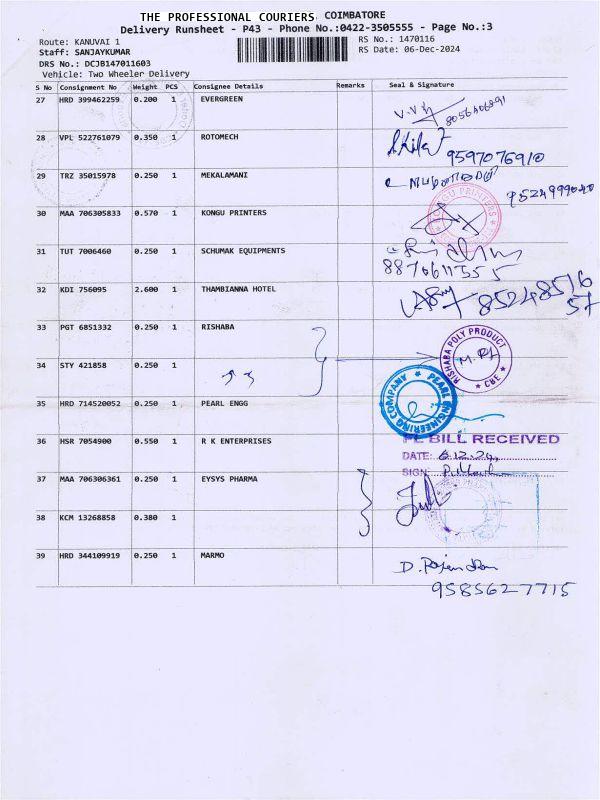 THE PROFESSIONAL COURIERS, COIMBATORE
Delivery Runsheet - P43 - Phone No.:0422-3505555 - Page No.:3
Route: KANUVAI 1
Staff: SANJAYKUMAR
DRS No.: DCJB147011603
Vehicle: Two Wheeler Delivery
RS No.: 1470116
RS Date: 06-Dec-2024
S No Consignment No Weight PCS Consignee Details Remarks Seal & Signature
27 HRD 399462259 0.200 1 EVERGREEN
28 VPL 522761079 0.350 1 ROTOMECH 9597076910
29 TRZ 35015978 0.250 1 MEKALAMANI
30 MAA 706305833 0.570 1 KONGU PRINTERS KONGU PRINTERS
31 TUT 7006460 0.250 1 SCHUMAK EQUIPMENTS
8870611555
32 KDI 756095 2.600 1 THAMBIANNA HOTEL 85248516
57
33 PGT 6851332 0.250 1 RISHABA RISHABA POLY PRODUCT * CBE *
34 STY 421858 0.250 1
35 HRD 714520052 0.250 1 PEARL ENGG PEARL ENGINEERING COMPANY
36 HSR 7054900 0.550 1 R K ENTERPRISES BILL RECEIVED
DATE: 6.12.24
SIGN:
37 MAA 706306361 0.250 1 EYSYS PHARMA
38 KCM 13268858 0.380 1
39 HRD 344109919 0.250 1 MARMO D. Rajendran
9585627715